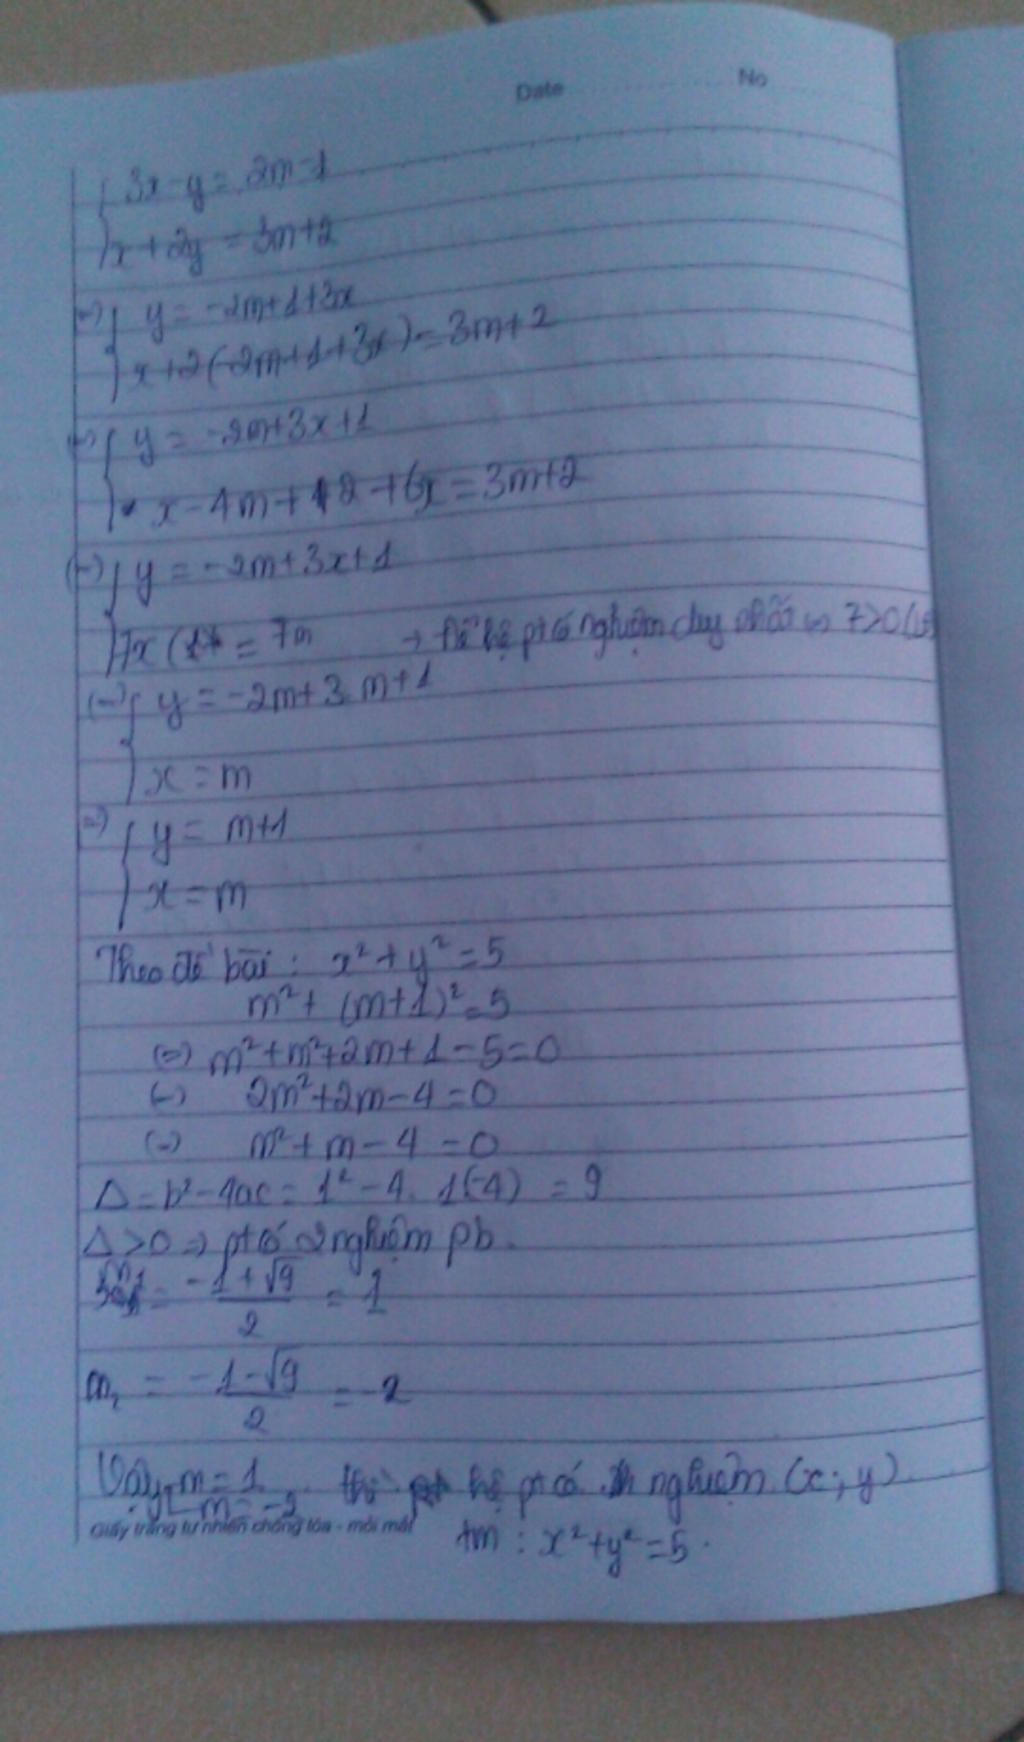 Date No
3x-y = 2m-1
x+2y = 3m+2
(=) y = -2m+1+3x
x+2(-2m+1+3x) = 3m+2
(=) y = -2m+3x+1
x-4m+2+6x = 3m+2
(=) y = -2m+3x+1
7x = 7m → Để hệ pt có nghiệm duy nhất 7>0
(=) y = -2m+3m+1
x = m
=) y = m+1
x = m
Theo đề bài : x²+y²=5
m²+ (m+1)²=5
(=) m²+m²+2m+1-5=0
(=) 2m²+2m-4=0
(=) m²+m-4=0
Δ=b²-4ac = 1²-4.1(-4) = 9
Δ>0 => pt có 2 nghiệm pb.
= -1+√9 / 2 = 1
= -1-√9 / 2 = -2
Vậy m=1 thì hệ pt có nghiệm (x;y)
m=-2
Giấy trắng tự nhiên chống lóa - mỏi mắt
tm : x²+y²=5.